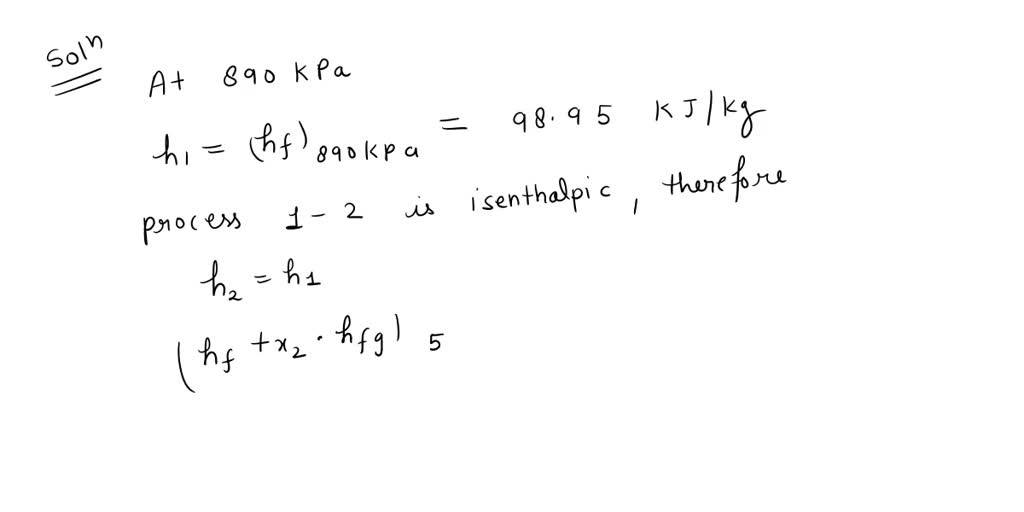 Soln
At 890 KPa
h1 = (hf) 890KPa = 98.95 KJ/kg
process 1-2 is isenthalpic, therefore
h2 = h1
(hf + x2 . hfg) 5